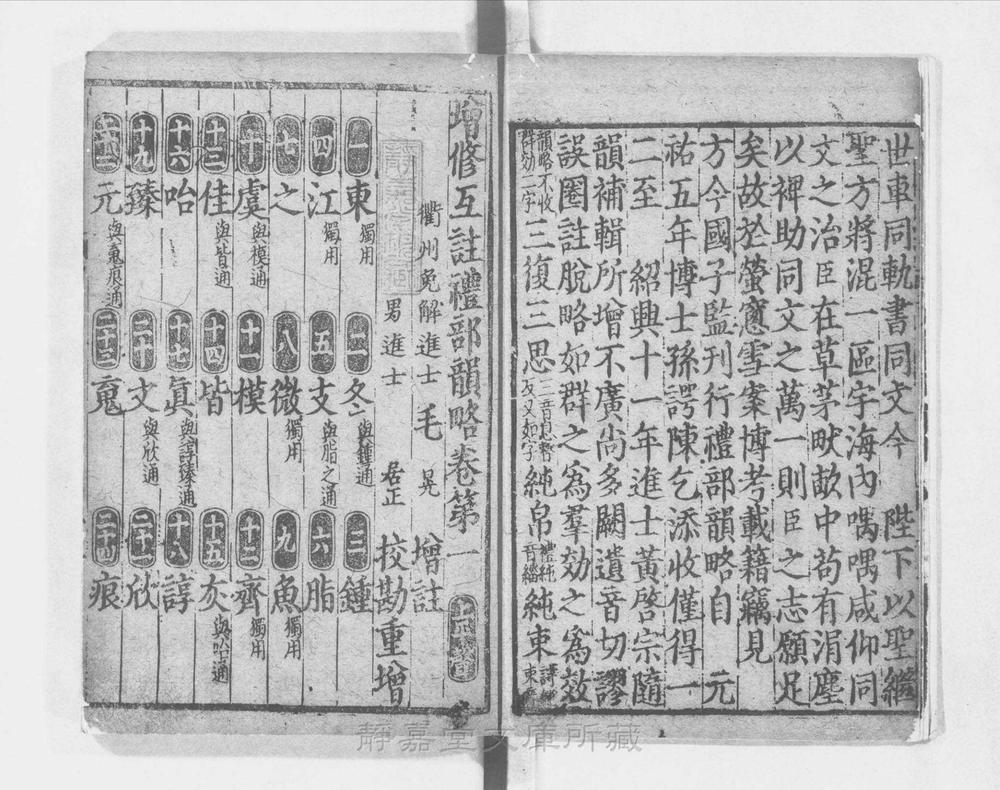 世車同軌書同文今　陛下以聖繼
聖方將混一區宇海內喁喁咸仰同
文之治臣在草茅畎畝中苟有涓塵
以裨助同文之萬一則臣之志願足
矣故於螢窻雪案博考載籍竊見
方今國子監刊行禮部韻略自　元
祐五年博士孫諤陳乞添收僅得一
二至　紹興十一年進士黃啓宗隨
韻補輯所增不廣尚多闕遺音切謬
誤圈註脫略如群之爲羣効之爲效
韻略不收群効二字三復三思三音息暫反又如字純帛禮純音緇純束詩純
增修互註禮部韻略卷第一
衢州免解進士　毛　晃　增註
男進士　居正　挍勘重增
一東獨用　二冬與鍾通　三鍾
四江獨用　五支與脂之通　六脂
七之　八微獨用　九魚獨用
十虞與模通　十一模　十二齊獨用
十三佳與皆通　十四皆　十五灰與咍通
十六咍　十七眞與諄臻通　十八諄
十九臻　二十文與欣通　二十一欣
二十二元與䰟痕通　二十三䰟　二十四痕
靜嘉堂文庫所藏